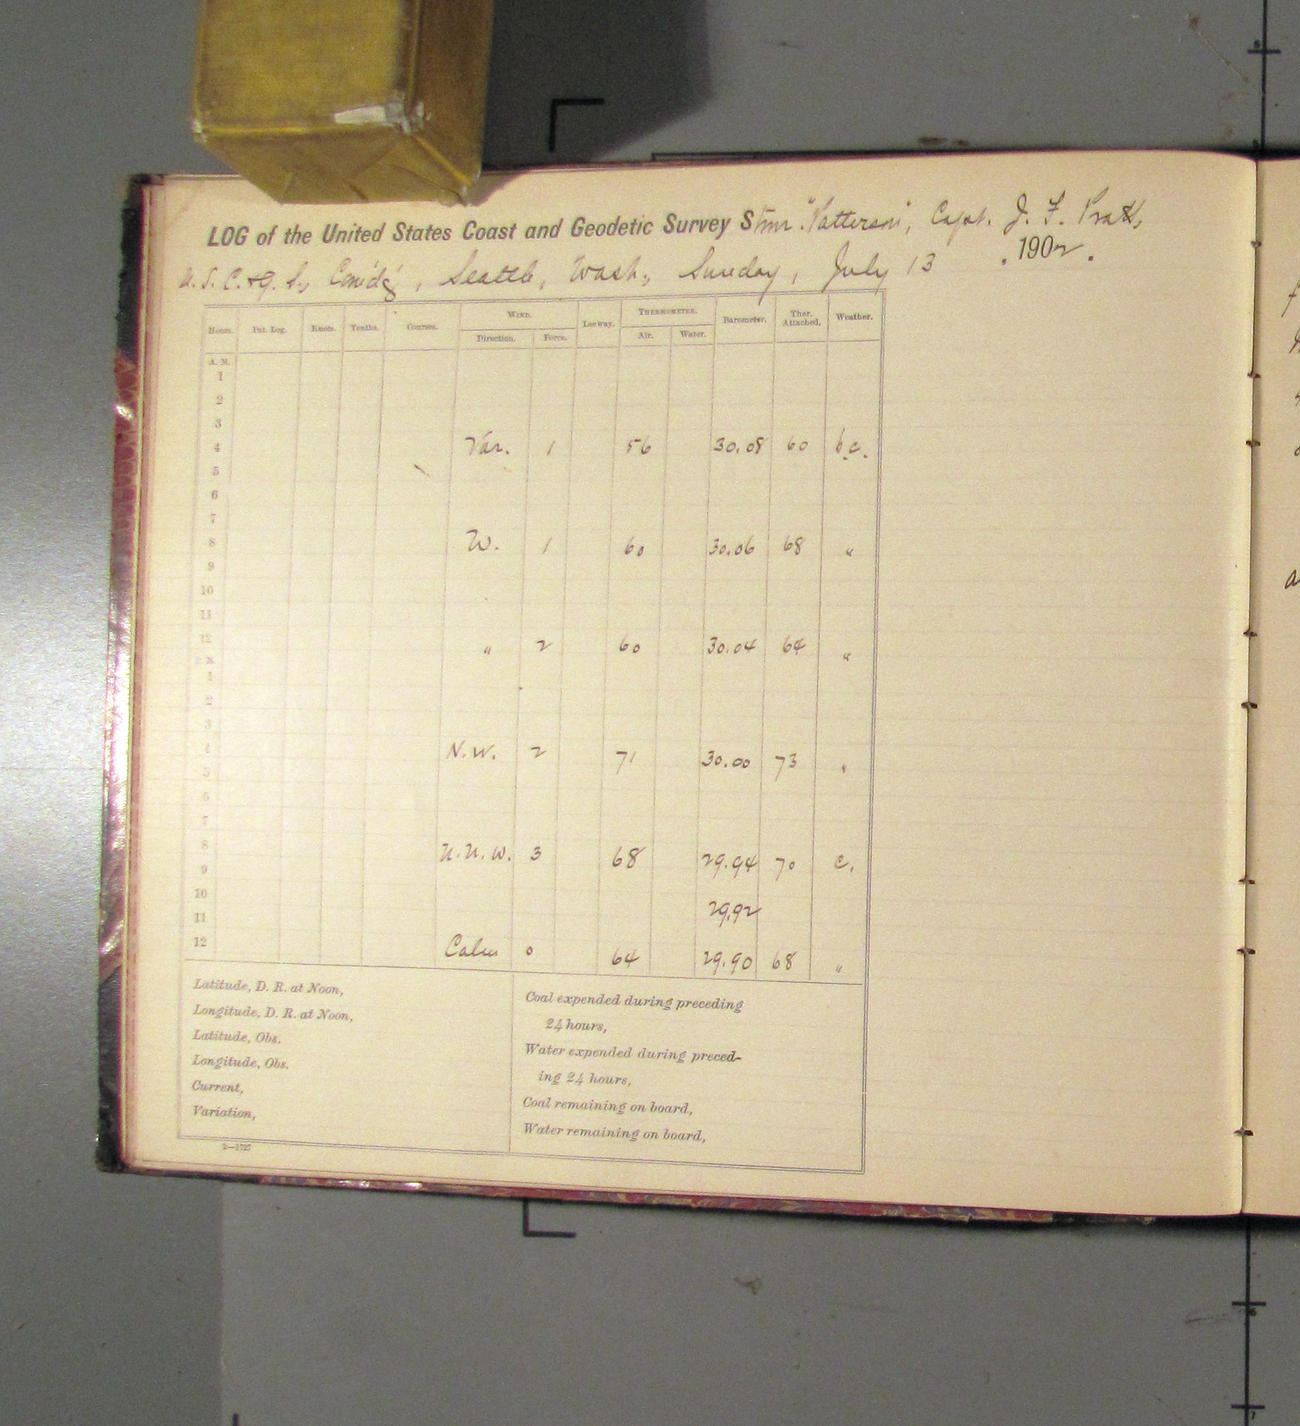 LOG of the United States Coast and Geodetic Survey Stmr. "Patterson", Capt. J. F. Pratt,
U. S. C. & G. S., Com'd'g, Seattle, Wash., Sunday, July 13, 1902.
Hours. Pat. Log. Knots. Tenths. Courses. WIND. Direction. Force. Leeway. THERMOMETER. Air. Water. Barometer. Ther. Attached. Weather.
A. M.
1
2
3
4 Var. 1 56 30.08 60 b.c.
5
6
7
8 W. 1 60 30.06 68 "
9
10
11
12 " 2 60 30.04 64 "
P. M.
1
2
3
4 N. W. 2 71 30.00 73 "
5
6
7
8 N. N. W. 3 68 29.94 70 c.
9
10 29.92
11
12 Calm 0 64 29.90 68 "
Latitude, D. R. at Noon,
Longitude, D. R. at Noon,
Latitude, Obs.
Longitude, Obs.
Current,
Variation,
Coal expended during preceding
24 hours,
Water expended during preced-
ing 24 hours,
Coal remaining on board,
Water remaining on board,
2—1727